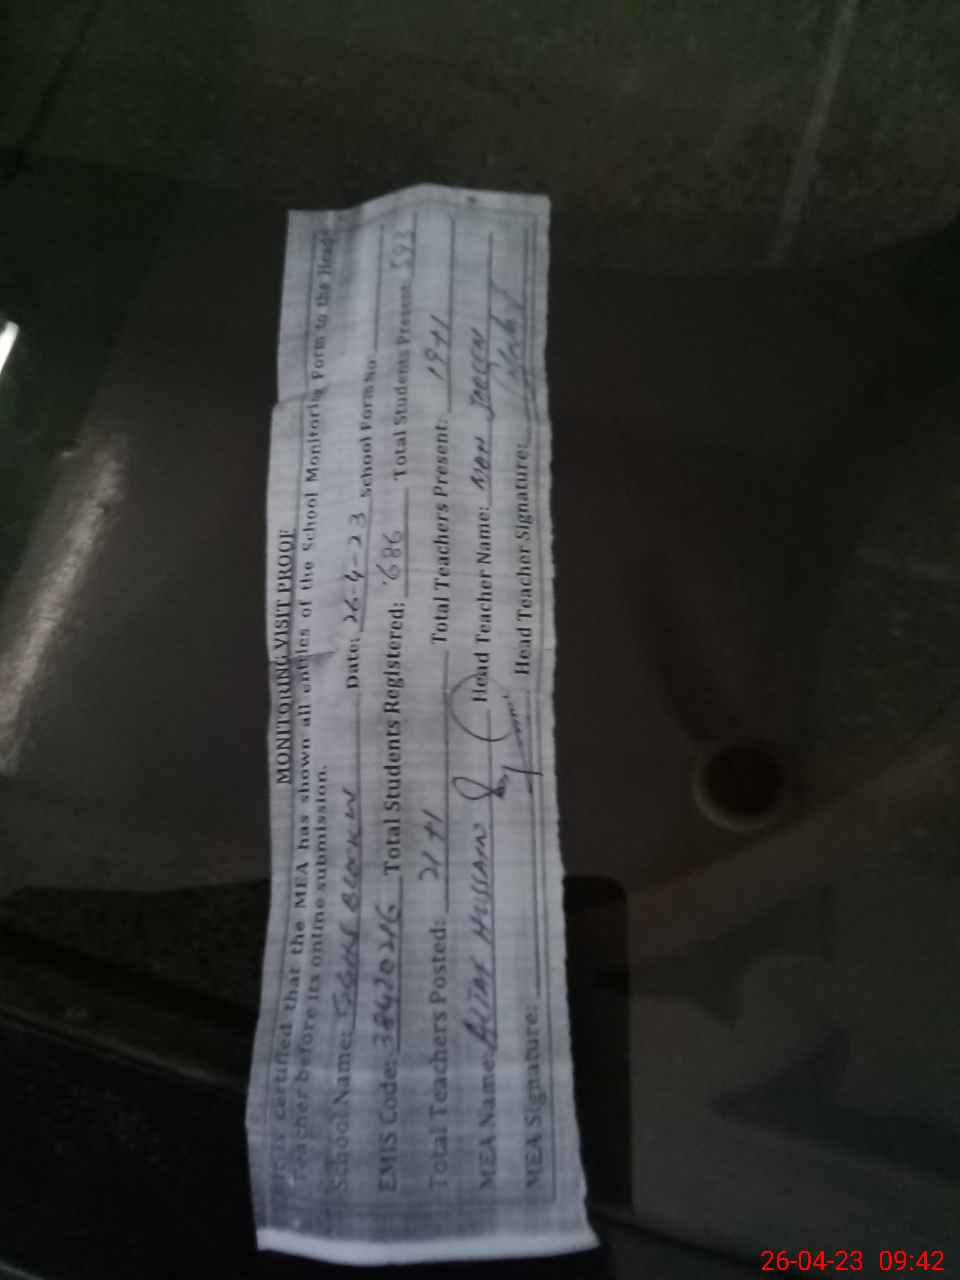 MONITORING VISIT PROOF
It is certified that the MEA has shown all entries of the School Monitoring Form to the Head
Teacher before its online submission.
School Name: BLOCK Date: 26-4-23 School Form No
EMIS Code: 38420216 Total Students Registered: 686 Total Students Present 593
Total Teachers Posted: 21+1 Total Teachers Present: 19+1
MEA Name: ALTAF HUSSAIN Head Teacher Name:
MEA Signature: Head Teacher Signature:
26-04-23 09:42